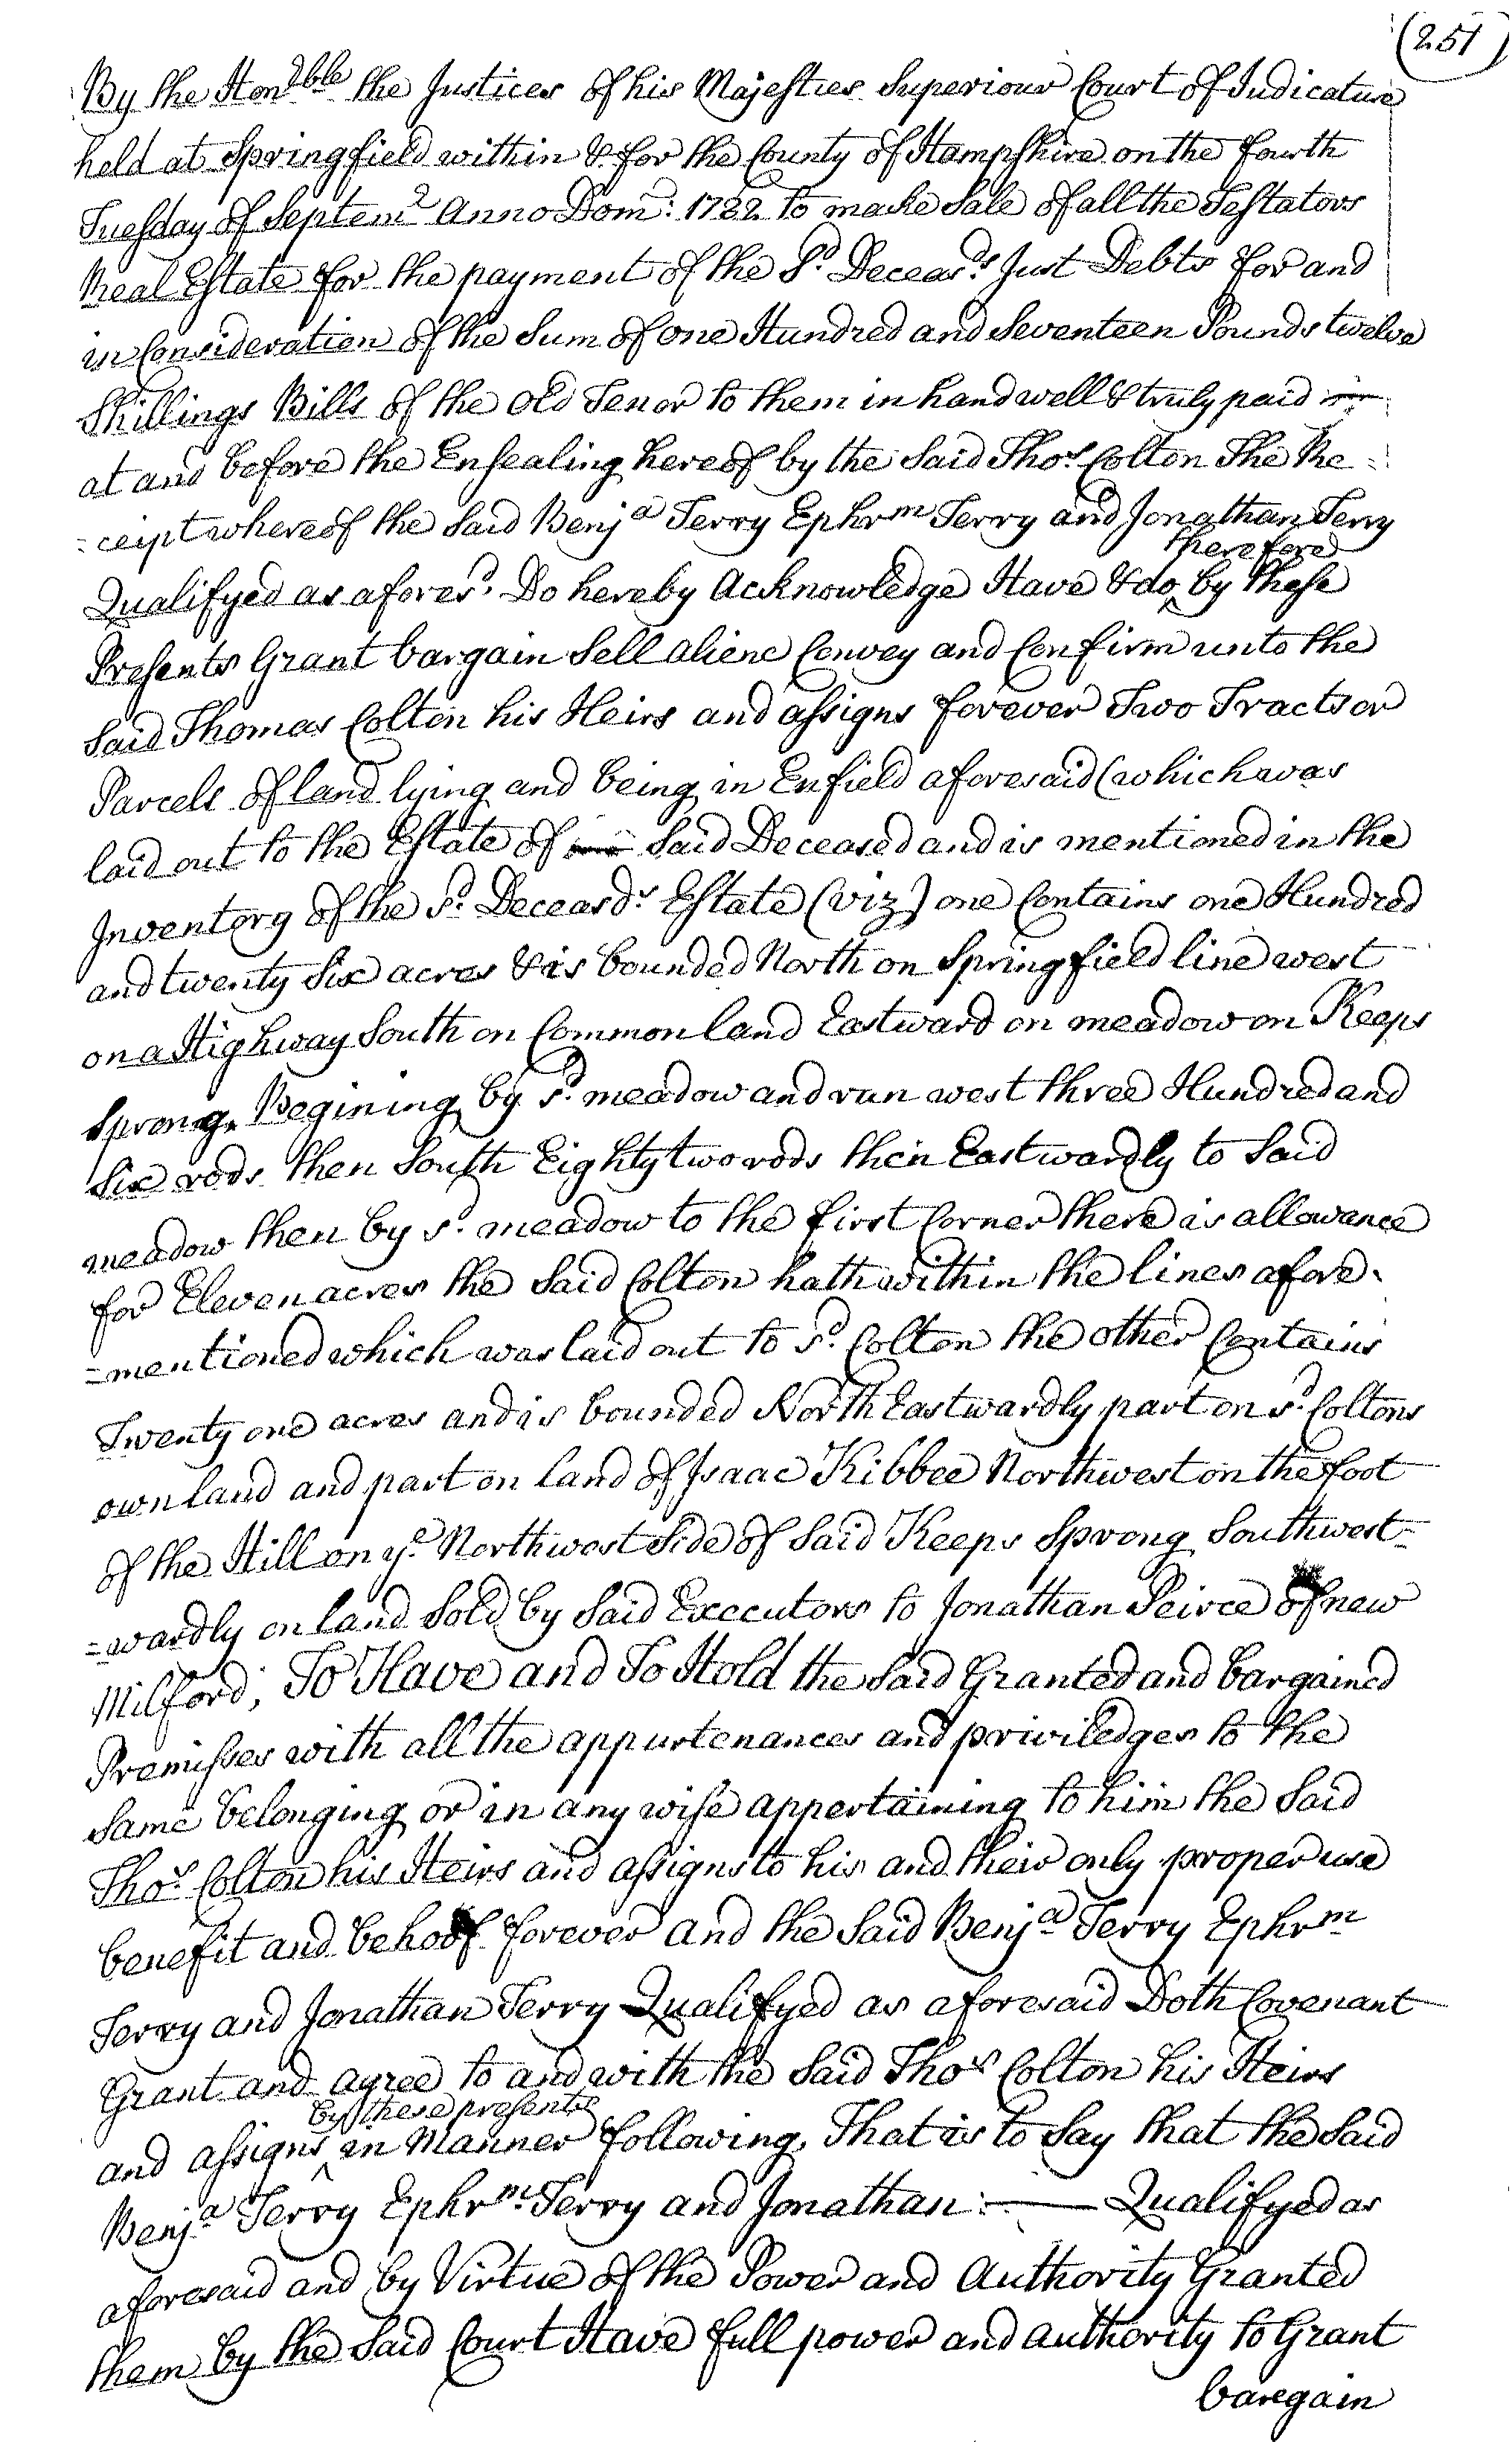 (251)
By the Hon:dble the Justices of his Majesties Superiour Court of Judicature
held at Springfield within & for the County of Hampshire on the fourth
Tuesday of Septemr Anno Dom: 1732 to make Sale of all the Testators
Real Estate for the payment of the Sd. Deceasds Just Debts for and
in Consideration of the Sum of one Hundred and Seventeen Pounds twelve
Shillings Bills of the old Tenor to them in hand well & truly paid
at and before the Ensealing hereof by the Said Thos Colton The Re=
=ceipt whereof the Said Benja Terry Ephrm Terry and Jonathan Terry
therefore
Qualifyed as aforesd. Do hereby Acknowledge Have & do ^ by these
Presents Grant bargain Sell aliene Convey and Confirm unto the
Said Thomas Colton his Heirs and assigns forever Two Tracts or
Parcels of land lying and being in Enfield aforesaid (which was
laid out to the Estate of Said Deceased and is mentioned in the
Inventory of the sd. Deceasds Estate (viz) one Contains one Hundred
and twenty Six acres & is bounded North on Springfield line west
on a Highway South on Common land Eastward on meadow on Keeps
Sprong. Begining by sd. meadow and run west three Hundred and
Six rods then South Eighty two rods then Eastwardly to Said
meadow then by sd. meadow to the first Corner there is allowance
for Eleven acres the Said Colton hath within the lines afore=
=mentioned which was laid out to sd. Colton the other Contains
Twenty one acres and is bounded North Eastwardly part on sd. Coltons
own land and part on land of Isaac Kibbee Northwest on the foot
of the Hill on ye. Northwest Side of Said Keeps Sprong Southwest=
=wardly on land Sold by Said Executors to Jonathan Peirce of new
Milford; To Have and To Hold the Said Granted and bargained
Premisses with all the appurtenances and priviledges to the
Same belonging or in any wise appertaining to him the Said
Thos. Colton his Heirs and assigns to his and their only proper use
benefit and behoof forever and the Said Benja Terry Ephrm
Terry and Jonathan Terry Qualifyed as aforesaid Doth Covenant
Grant and agree to and with the Said Thos Colton his Heirs
by these presents
and assigns ^ in Manner following, That is to Say that the Said
Benja Terry Ephrm. Terry and Jonathan :—— Qualifyed as
aforesaid and by Virtue of the Power and Authority Granted
them by the Said Court Have full power and authority to Grant
bargain